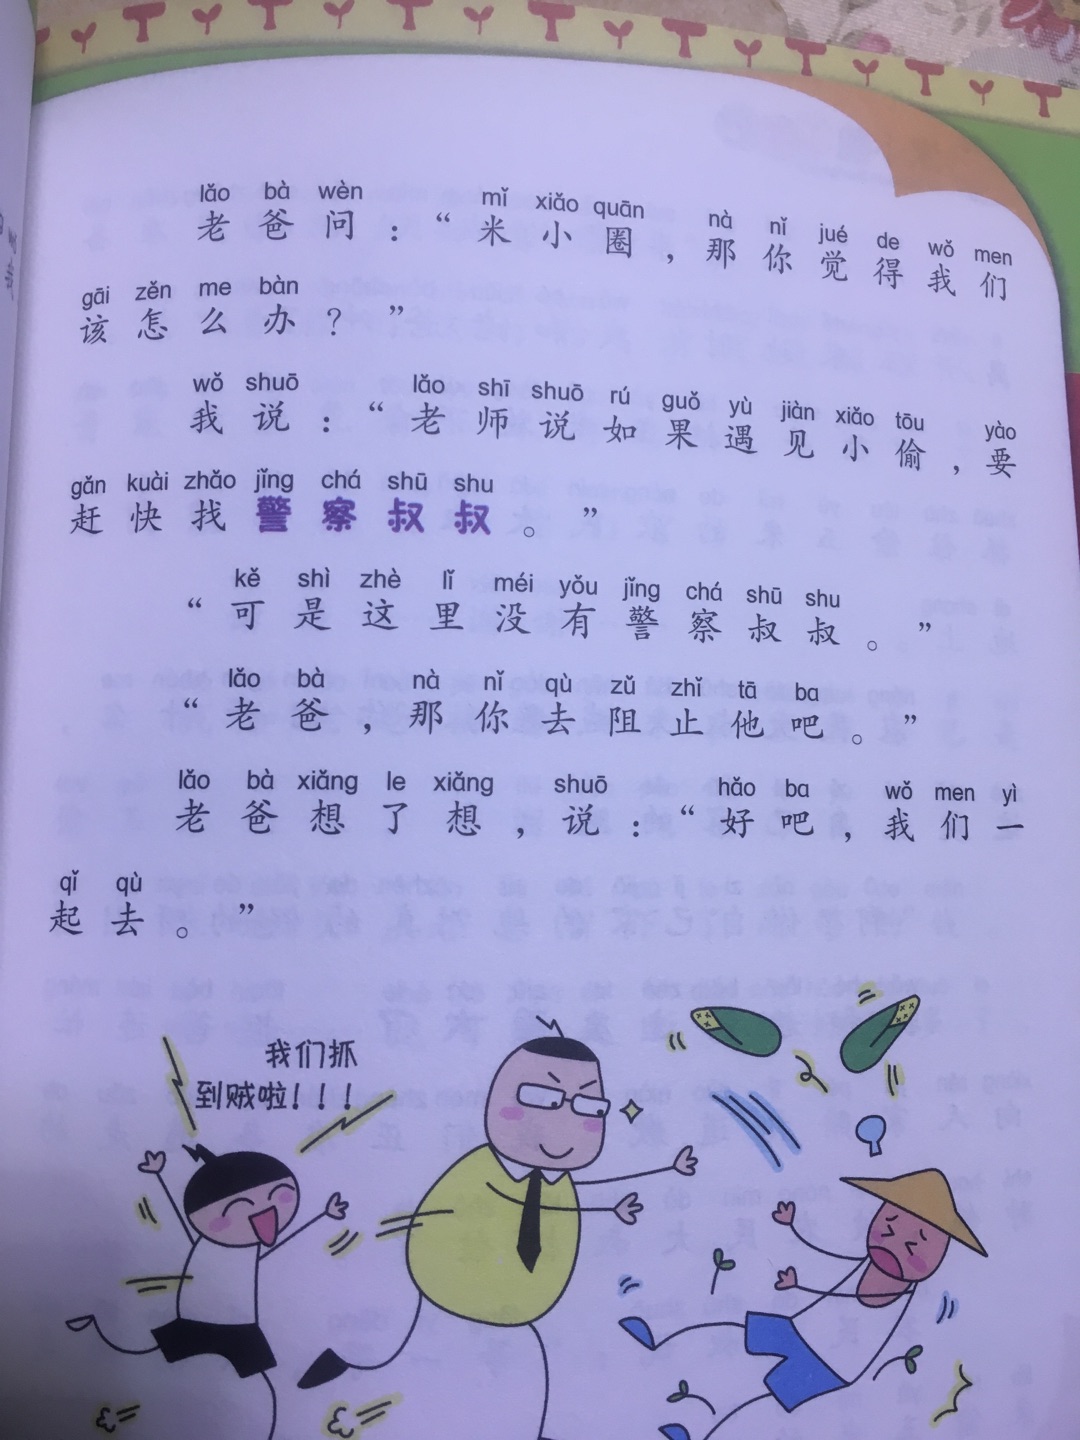 lǎo bà wèn mǐ xiǎo quān nà nǐ jué de wǒ men
老爸问：“米小圈，那你觉得我们
gāi zěn me bàn
该怎么办？”
wǒ shuō lǎo shī shuō rú guǒ yù jiàn xiǎo tōu yào
我说：“老师说如果遇见小偷，要
gǎn kuài zhǎo jǐng chá shū shu
赶快找警察叔叔。”
kě shì zhè lǐ méi yǒu jǐng chá shū shu
“可是这里没有警察叔叔。”
lǎo bà nà nǐ qù zǔ zhǐ tā ba
“老爸，那你去阻止他吧。”
lǎo bà xiǎng le xiǎng shuō hǎo ba wǒ men yì
老爸想了想，说：“好吧，我们一
qǐ qù
起去。”
我们抓
到贼啦！！！